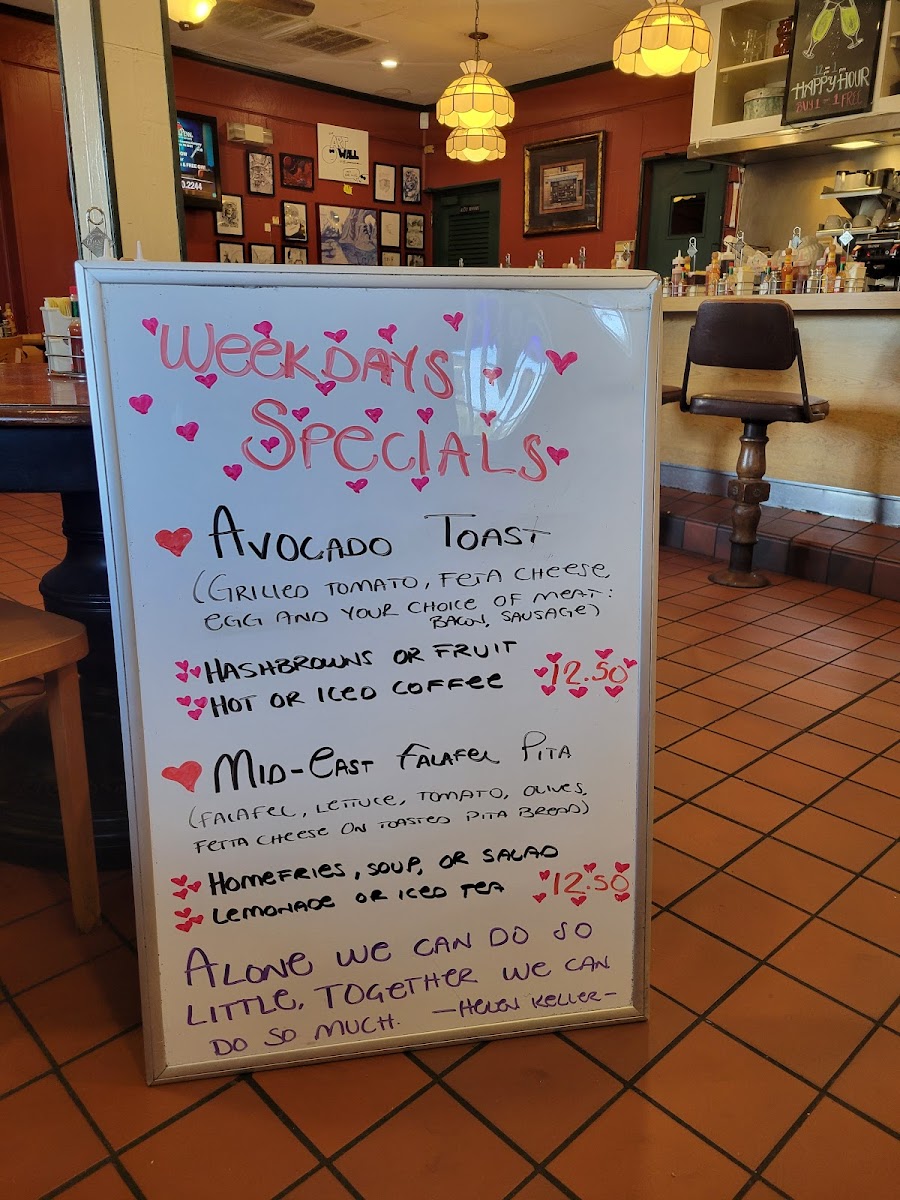 12-1
HAPPY HOUR
BUY 1-1 FREE
WALL
0.2244
WEEKDAYS
SPECIALS
AVOCADO TOAST
(GRILLED TOMATO, FETA CHEESE,
EGG AND YOUR CHOICE OF MEAT:
BACON, SAUSAGE)
HASHBROWNS OR FRUIT
HOT OR ICED COFFEE 12.50
MID-EAST FALAFEL PITA
(FALAFEL, LETTUCE, TOMATO, OLIVES,
FETTA CHEESE ON TOASTED PITA BREAD)
HOMEFRIES, SOUP, OR SALAD
LEMONADE OR ICED TEA 12.50
ALONE WE CAN DO SO
LITTLE, TOGETHER WE CAN
DO SO MUCH. -HELEN KELLER-